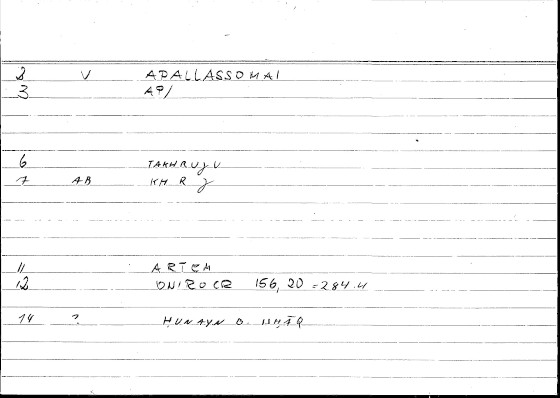 2 V APALLASSOMAI
3 AP/
6 TAKHRUJU
7 AB KH R J
11 ARTEM
12 ONIROCR 156, 20 = 284.4
14 ? ḤUNAYN B. ISḤĀQ